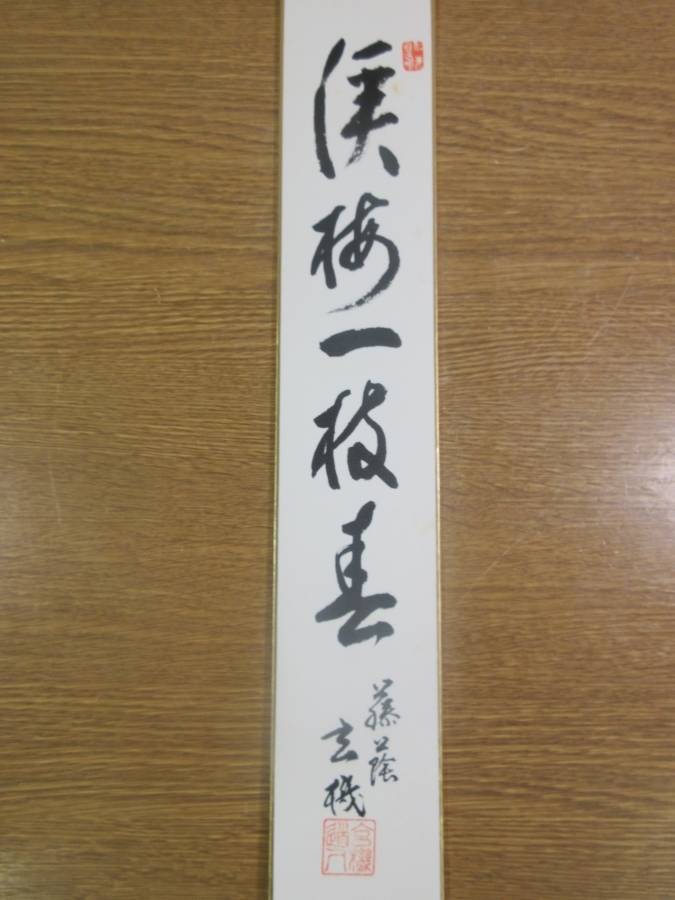 渓梅一枝春
藤蔭
玄機